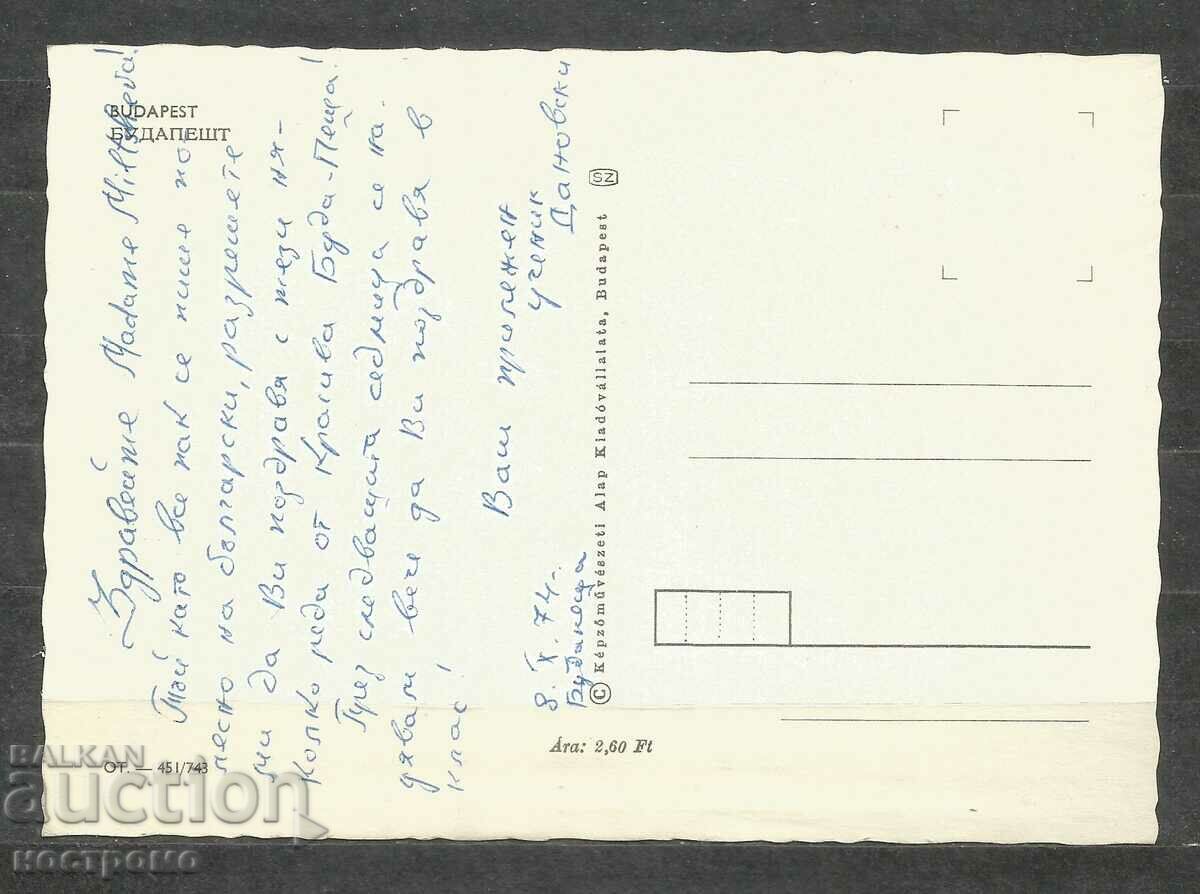 BUDAPEST
БУДАПЕШТ
Здравейте Madame Miltcheva!
Тъй като все пак се пише по-
лесно на български, разрешете
ми да Ви поздравя с тези ня-
колко реда от красива Буда-Пеща!
През следващата седмица се на-
дявам вече да Ви поздравя в
клас!
Ваш прилежен
ученик
Дановски
8. X. 74.
Будапеща
© Képzőművészeti Alap Kiadóvállalata, Budapest
SZ
Ára: 2,60 Ft
OT. — 451/743
BALKAN
auction
костромо